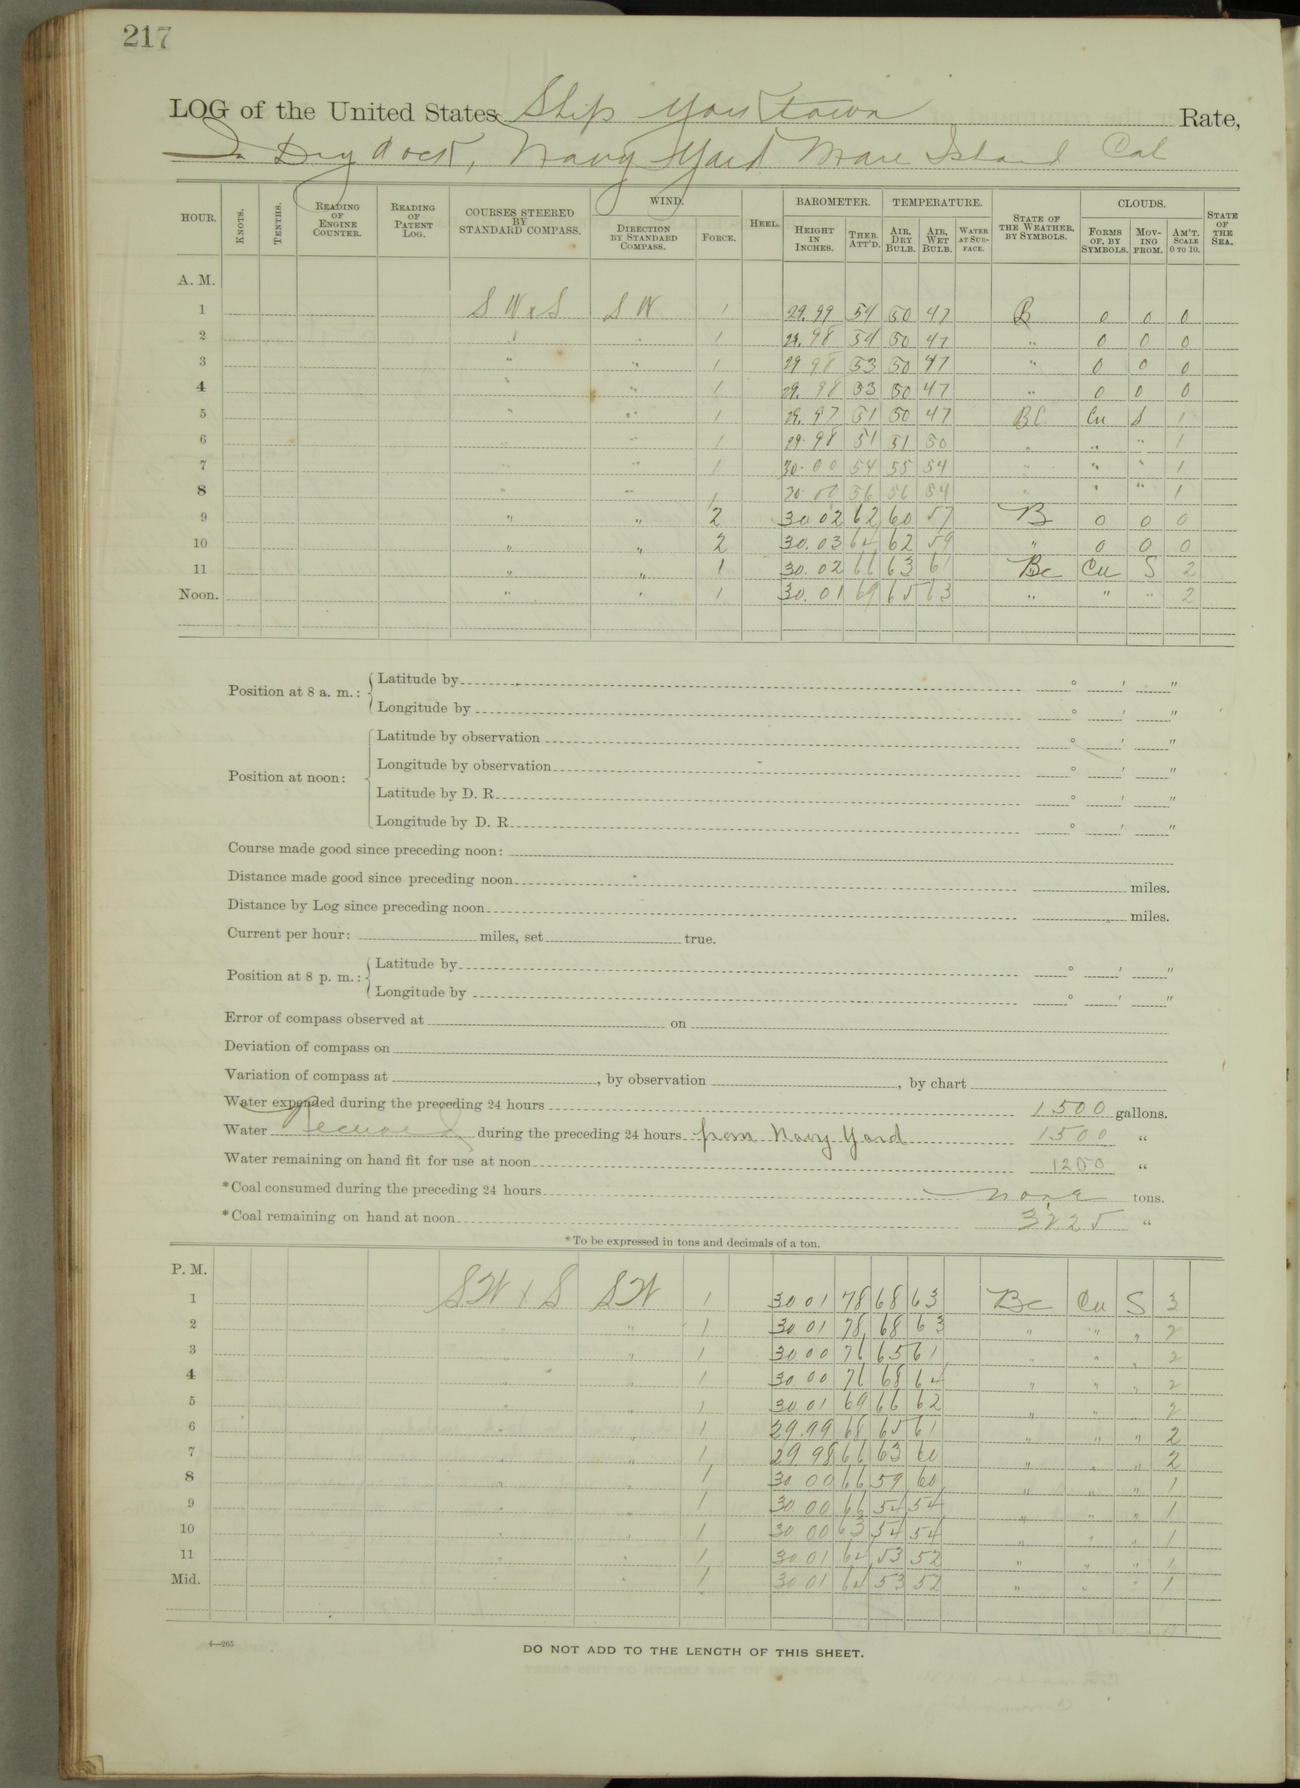 217
LOG of the United States Ship Yorktown Rate,
In Dry dock, Navy Yard Mare Island Cal
HOUR. KNOTS. TENTHS. READING OF ENGINE COUNTER. READING OF PATENT LOG. COURSES STEERED BY STANDARD COMPASS. WIND. DIRECTION BY STANDARD COMPASS. FORCE. HEEL. BAROMETER. HEIGHT IN INCHES. THER. ATT'D. TEMPERATURE. AIR, DRY BULB. AIR, WET BULB. WATER AT SURFACE. STATE OF THE WEATHER, BY SYMBOLS. CLOUDS. FORMS OF, BY SYMBOLS. MOVING FROM. AM'T. SCALE 0 TO 10. STATE OF THE SEA.
A. M.
1 S W x S S W 1 29.99 54 50 47 B 0 0 0
2 " " 1 29.98 54 50 47 " 0 0 0
3 " " 1 29 98 53 50 47 " 0 0 0
4 " " 1 29.98 53 50 47 " 0 0 0
5 " " 1 29.97 51 50 47 BC Cu S 1
6 " " 1 29.98 51 51 50 " " " 1
7 " " 1 30.00 54 55 54 " " " 1
8 " " 1 30.00 56 56 54 " " " 1
9 " " 2 30 02 62 60 57 B 0 0 0
10 " " 2 30.03 64 62 59 " 0 0 0
11 " " 1 30.02 66 63 61 Bc Cu S 2
Noon. " " 1 30.01 69 65 63 " " " 2
Position at 8 a. m.: Latitude by ° ' "
Longitude by ° ' "
Position at noon: Latitude by observation ° ' "
Longitude by observation ° ' "
Latitude by D. R. ° ' "
Longitude by D. R. ° ' "
Course made good since preceding noon:
Distance made good since preceding noon miles.
Distance by Log since preceding noon miles.
Current per hour: miles, set true.
Position at 8 p. m.: Latitude by ° ' "
Longitude by ° ' "
Error of compass observed at on
Deviation of compass on
Variation of compass at , by observation , by chart
Water expended during the preceding 24 hours 1500 gallons.
Water Received during the preceding 24 hours from Navy Yard 1500 "
Water remaining on hand fit for use at noon 1200 "
*Coal consumed during the preceding 24 hours none tons.
*Coal remaining on hand at noon "
*To be expressed in tons and decimals of a ton.
P. M.
1 SW x S SW 1 30 01 78 68 63 Bc Cu S 3
2 " " 1 30 01 78 68 63 " " " 2
3 " " 1 30 00 76 65 61 " " " 2
4 " " 1 30.00 76 68 64 " " " 2
5 " " 1 30.01 69 66 62 " " " 2
6 " " 1 29.99 68 65 61 " " " 2
7 " " 1 29.98 66 63 60 " " " 2
8 " " 1 30 00 66 59 60 " " " 1
9 " " 1 30 00 66 54 54 " " " 1
10 " " 1 30 00 63 54 54 " " 1
11 " " 1 30 01 64 53 52 " " " 1
Mid. " " 1 30 01 64 53 52 " " " 1
4—265
DO NOT ADD TO THE LENGTH OF THIS SHEET.